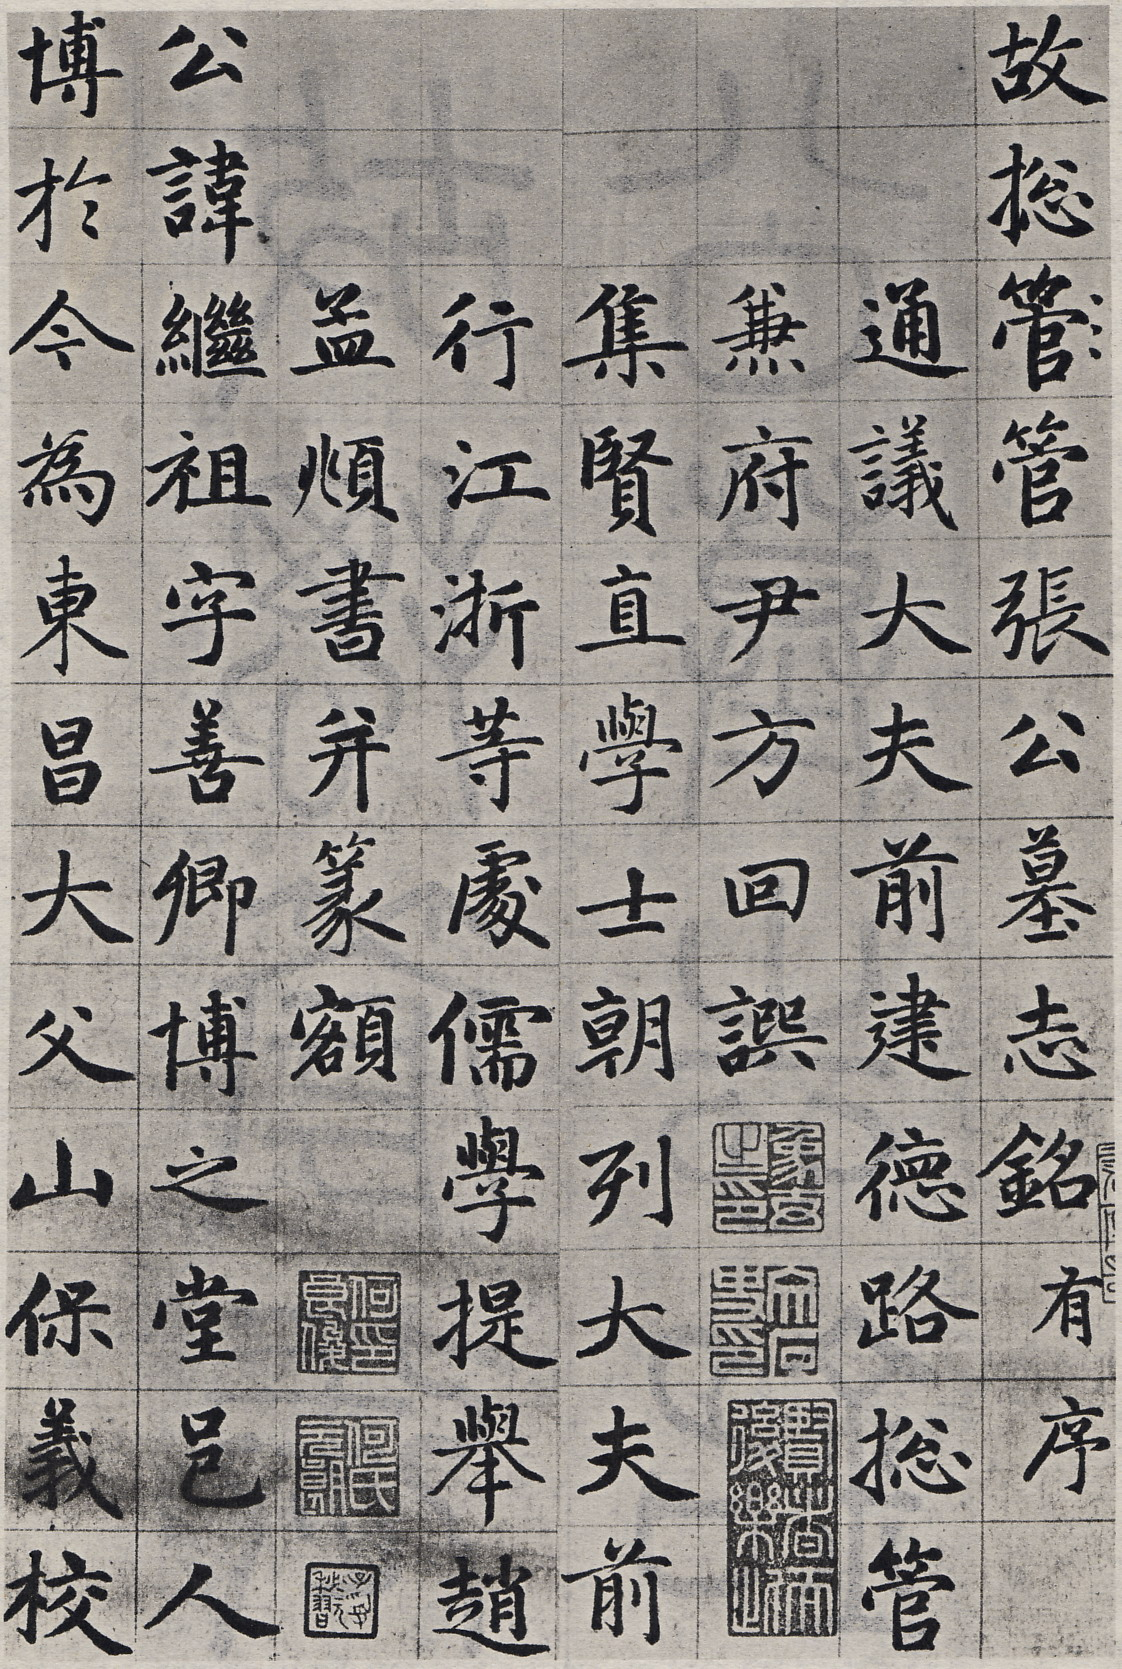 故総管管張公墓志銘有序
通議大夫前建德路総管
兼府尹方回譔
集賢直學士朝列大夫前
行江浙等處儒學提舉趙
孟頫書并篆額
公諱繼祖字善卿博之堂邑人
博於今為東昌大父山保義校